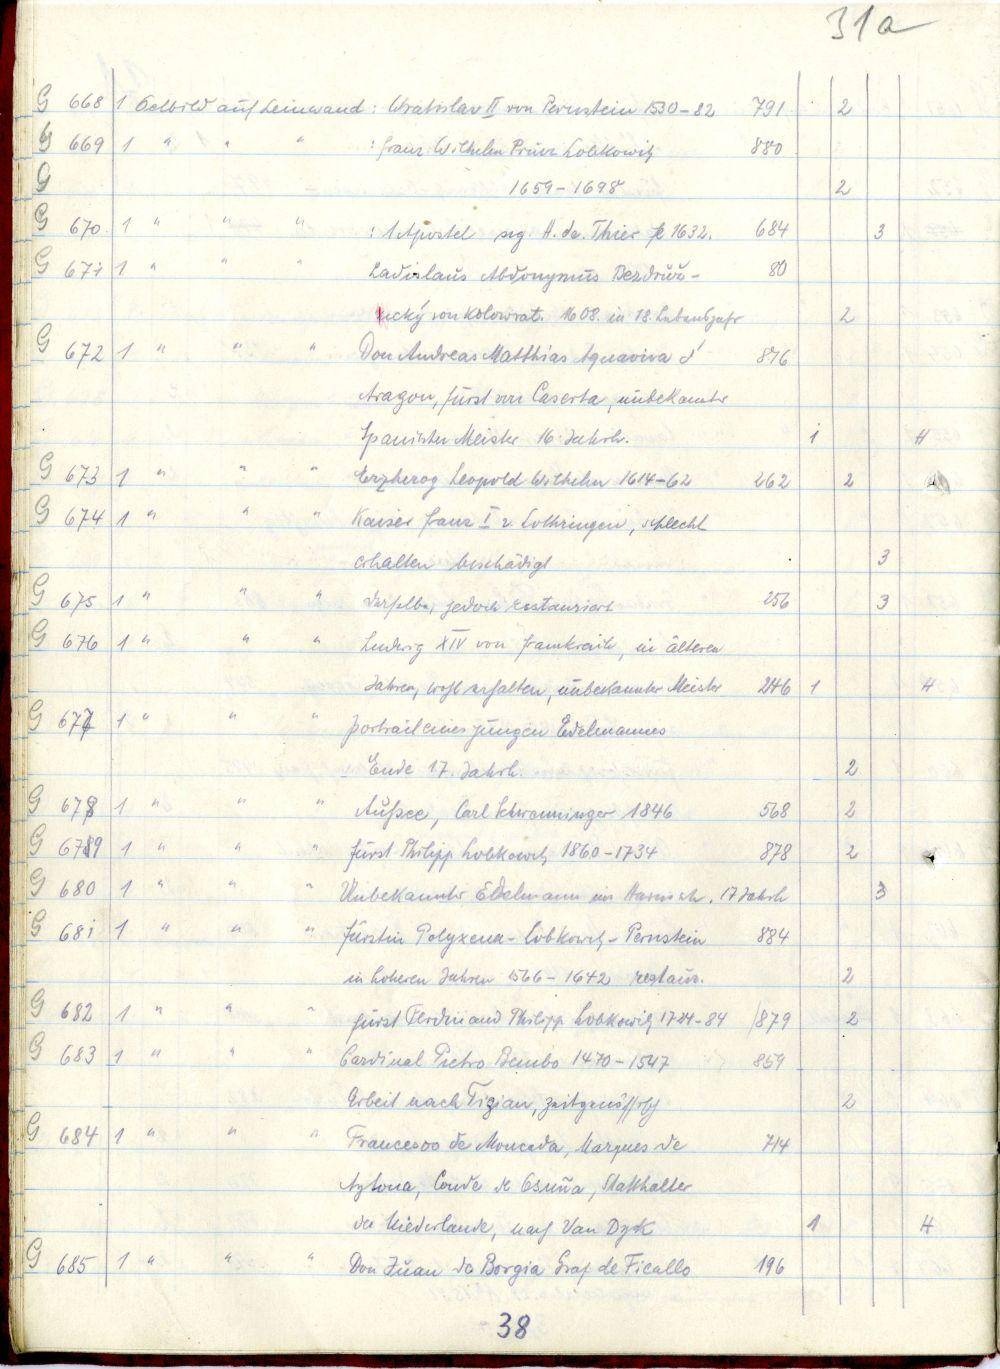 31a
G 668 1 Oelbild auf Leinwand : Wratislav II von Pernstein 1530-82 791 2
G 669 1 " " " : Franz Wilhelm Prinz Lobkowitz 880
G 1659-1698 2
G 670 1 " " " : 1 Apostel sig A. de. Thier 1632. 684 3
G 671 1 " " " Ladislaus Abdonymus Bezdruž- 80
ický von Kolowrat. 1608. in 18. Lebensjahr 2
G 672 1 " " " Don Andreas Matthias Aquaviva d'
876
Aragon, Fürst von Caserta, unbekannter
Spanischer Meister 16 Jahrh. 1 H
G 673 1 " " " Erzherzog Leopold Wilhelm 1614-62 262 2
G 674 1 " " " Kaiser Franz I v. Lothringen, schlecht
erhalten beschädigt 3
G 675 1 " " " derselbe, jedoch restauriert 256 3
G 676 1 " " " Ludwig XIV von Frankreich, in älteren
Jahren, wohl erhalten, unbekannter Meister 246 1 H
G 677 1 " " " Portrait eines jungen Edelmannes
Ende 17. Jahrh. 2
G 678 1 " " " Aussee, Carl Schwanninger 1846 568 2
G 679 1 " " " Fürst Philipp Lobkowitz 1860-1734 878 2
G 680 1 " " " Unbekannter Edelmann im Harnisch. 17 Jahrh 3
G 681 1 " " " Fürstin Polyxena-Lobkowitz-Pernstein 884
in hoheren Jahren 1566-1642 restaur. 2
G 682 1 " " " Fürst Ferdinand Philipp Lobkowitz 1724-84 879 2
G 683 1 " " " Cardinal Pietro Bembo 1470-1547 859
Arbeit nach Tizian, zeitgenössisch 2
G 684 1 " " " Francesco de Moncada, Marques de 714
Aytona, Conde de Osuña, Statthalter
der Niederlande, nach Van Dyck 1 H
G 685 1 " " " Don Juan de Borgia Graf de Ficallo 196
38